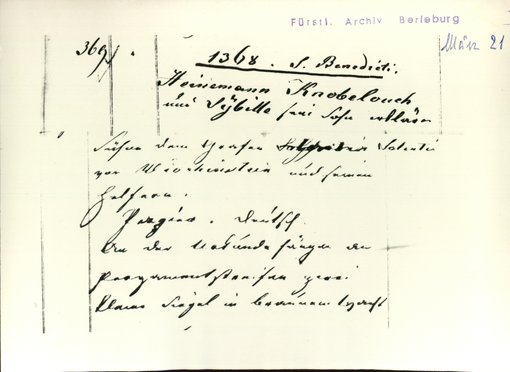 Fürstl. Archiv Berleburg
März 21
369
1368 . S. Benedicti.
Heinemann Knobelouch
und Sybille sein Sohn erklären
Sühne dem Grafen Salentin
von und seinen
Helfern.
Deutsch
An der Urkunde hängen an
Pergamentstreifen zwei
kleine Siegel in braunem Wachs